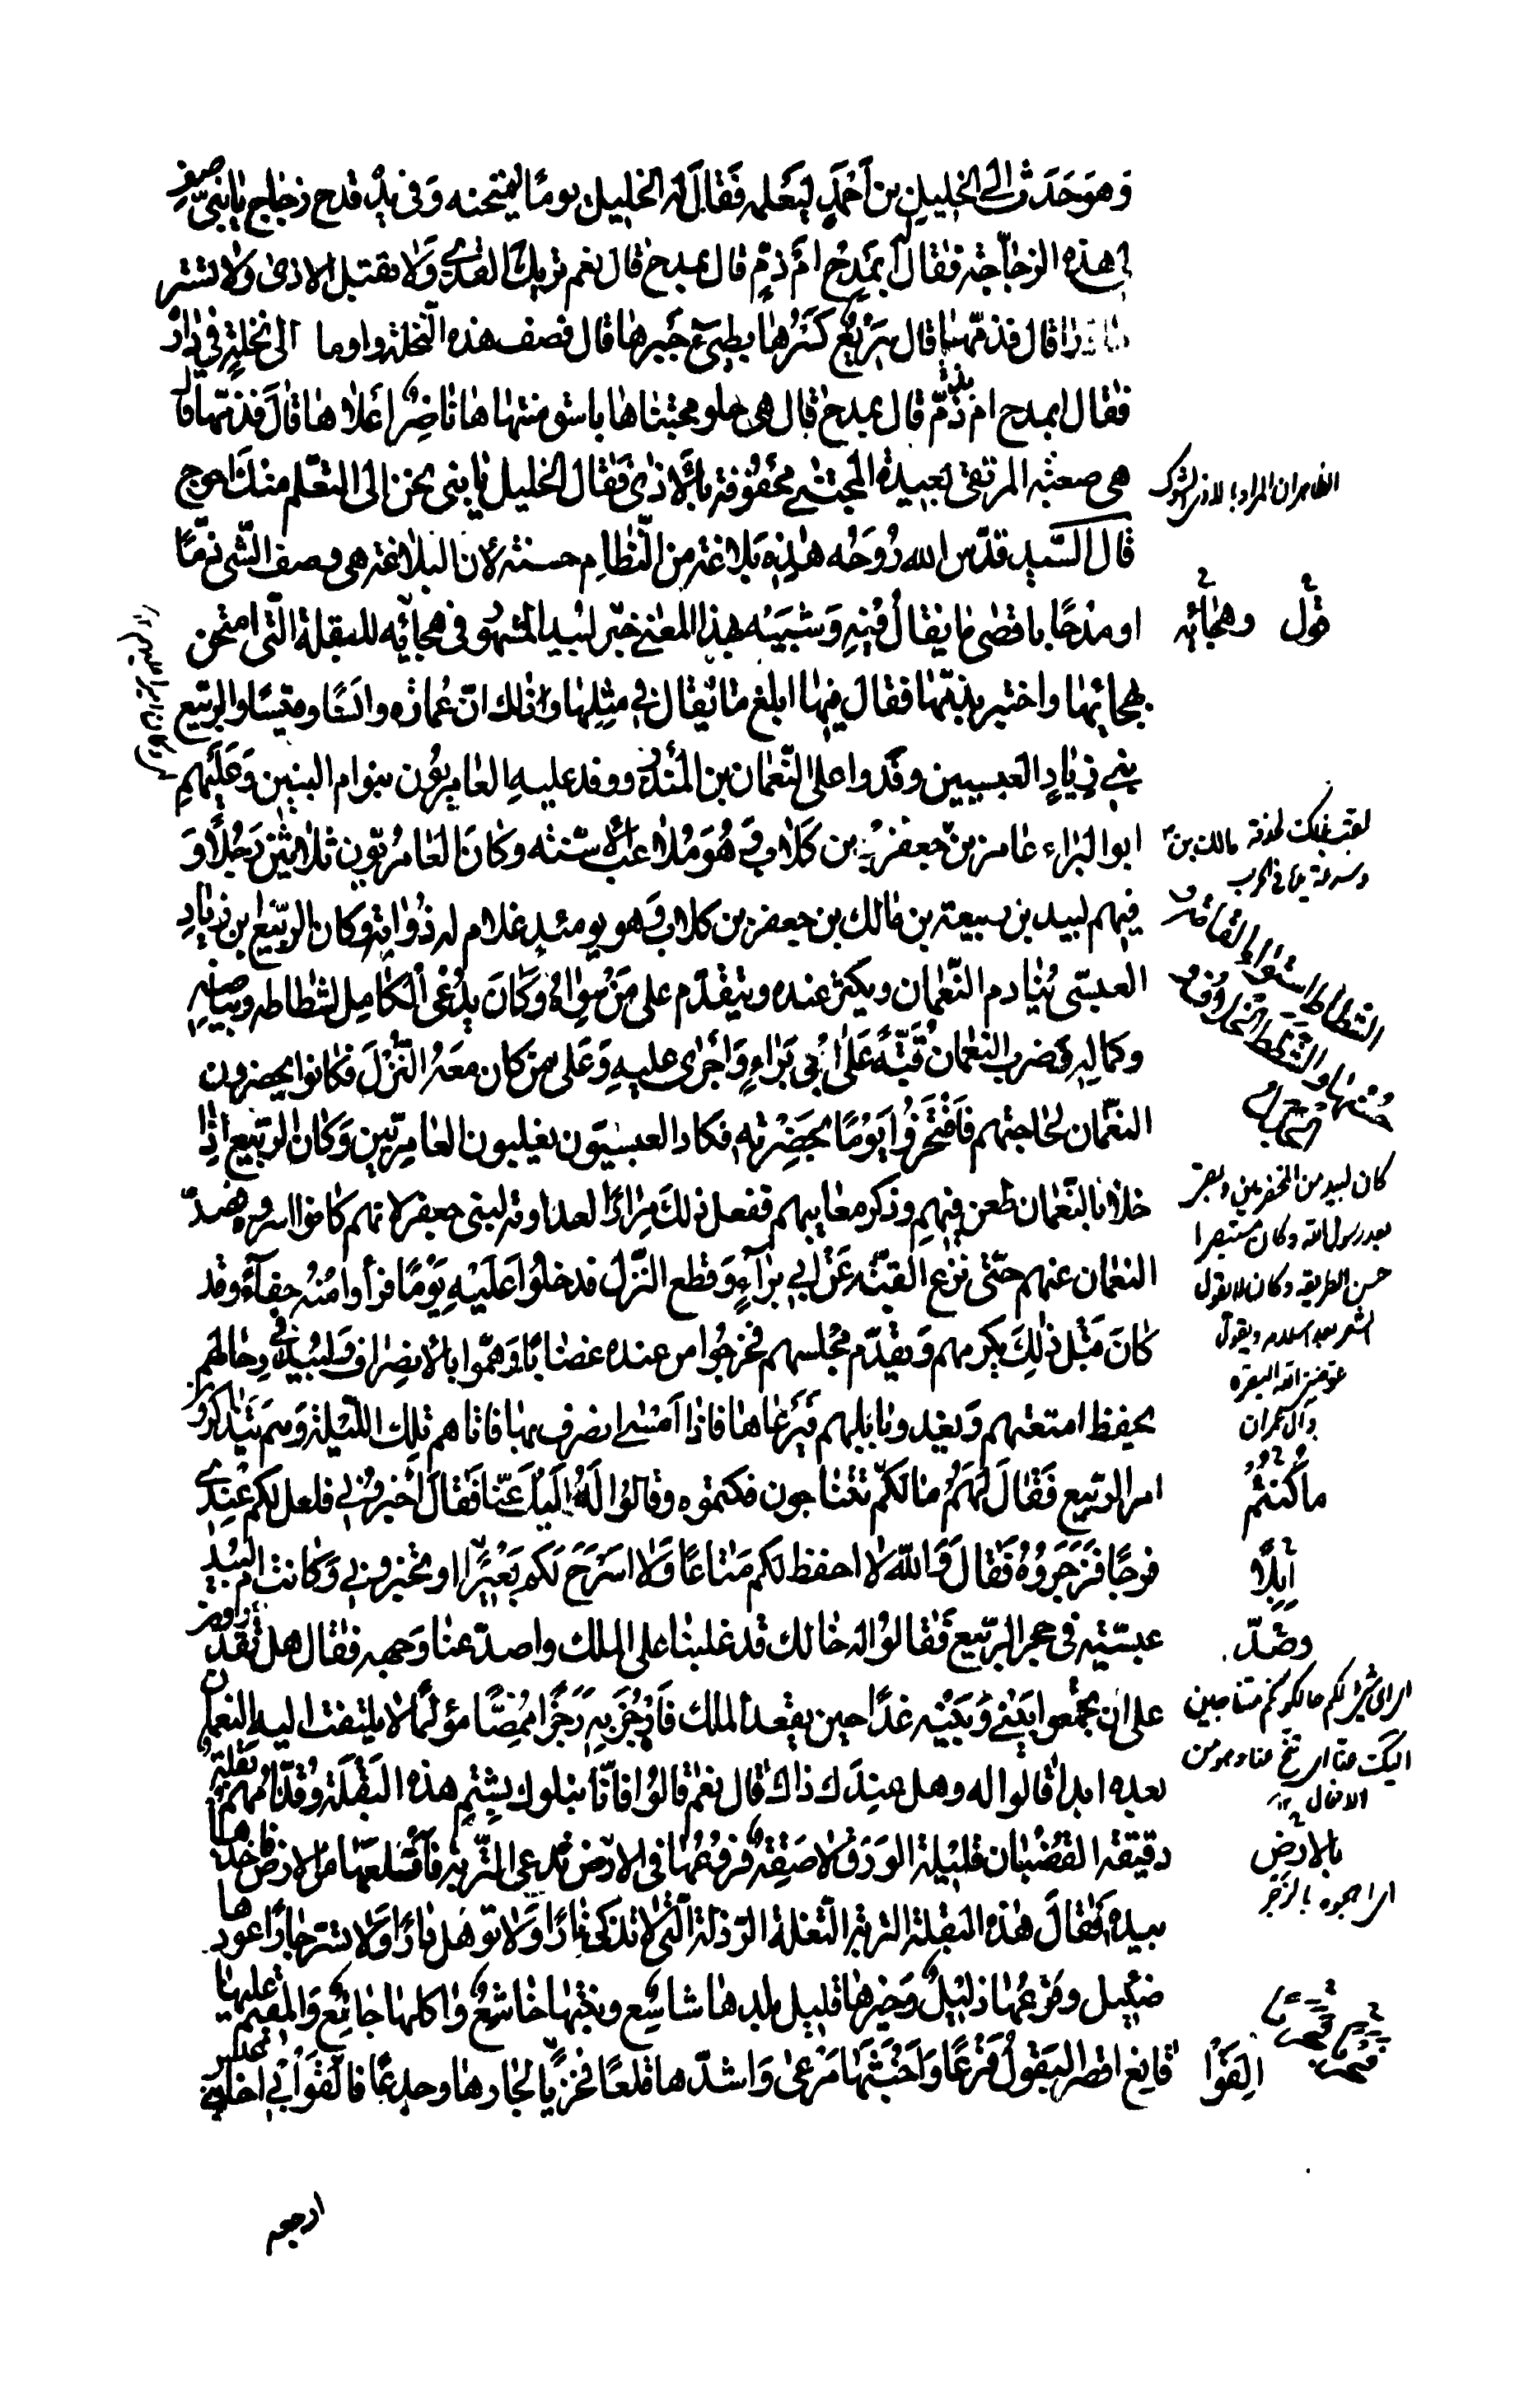 وهو حدث الى الخليل بن احمد ليعلمه فقال له الخليل يوما يمتحنه وفي يده قدح زجاج يا بني صف
لي هذه الزجاجة فقال أبمدح ام ذم قال بمدح قال نعم تريك القذى ولا تقبل الاذى ولا تستر
قال فذمها قال سريع كسرها بطيء جبرها قال فصف هذه النخلة واوما الى نخلة في داره
فقال ابمدح ام بذم قال بمدح قال هي حلو مجتناها باسق منتهاها ناضر اعلاها قال فذمها قال
هي صعبة المرتقى بعيدة المجتنى محفوفة بالاذى فقال الخليل يا بني نحن الى التعلم منك احوج
قال السيد قدس الله روحه هذه بلاغة من النظام حسنة لان البلاغة هي وصف الشيء ذما
او مدحا باقصى ما يقال فيه وشبيه بهذا المعنى خبر لبيد المشهور في هجائه للبقلة التي امتحن
بهجائها واختبر بذمها فقال فيها ابلغ ما يقال في مثلها وذلك ان عمارة وانسا وقيسا والربيع
بني زياد العبسيين وفدوا على النعمان بن المنذر ووفد عليه العامريون بنو ام البنين وعليهم
ابو البراء عامر بن جعفر بن كلاب وهو ملاعب الاسنة وكان العامريون ثلاثين رجلا و
فيهم لبيد بن ربيعة بن مالك بن جعفر بن كلاب وهو يومئذ غلام له ذؤابة وكان الربيع ابن زياد
العبسي ينادم النعمان ويكثر عنده ويتقدم على من سواه وكان يدعى الكامل لشطاطه وبياضه
وكماله فضرب النعمان قبة على ابي براء واجرى عليه وعلى من كان معه النزل فكانوا يحضرون
النعمان لحاجتهم فافتخروا يوما بحضرته فكاد العبسيون يغلبون العامريين وكان الربيع اذا
خلا بالنعمان طعن فيهم وذكر معايبهم ففعل ذلك مرارا لعداوته لبني جعفر لانهم كانوا اسروه فصد
النعمان عنهم حتى نزع القبة عن ابي براء وقطع النزل فدخلوا عليه يوما فراوا منه جفاء وقد
كان قبل ذلك يكرمهم ويقدم مجلسهم فخرجوا من عنده غضابا وهموا بالانصراف ولبيد في رحالهم
يحفظ امتعتهم ويغدو بابلهم فيرعاها فاذا امسى انصرف بها فاتاهم تلك الليلة وهم يتذاكرون
امر الربيع فقال لهم ما لكم تتناجون فكتموه وقالوا له اليك عنا فقال اخبروني فلعل لكم عندي
فرجا فزجروه فقال والله لا احفظ لكم متاعا ولا اسرح لكم بعيرا او تخبروني وكانت ام لبيد
عبسية في حجر الربيع فقالوا له خالك قد غلبنا على الملك واصد عنا وجهه فقال هل تقدرون
على ان تجمعوا بيني وبينه غدا حين يقعد الملك فارجز به رجزا ممضا مؤلما لا يلتفت اليه النعمان
بعده ابدا قالوا له وهل عندك ذاك قال نعم قالوا فانا نبلوك بشتم هذه البقلة وقدامهم بقلة
دقيقة القضبان قليلة الورق لاصقة فروعها في الارض تدعى التربة فاقتلعها من الارض فاخذها
بيده فقال هذه البقلة التربة التفلة الرذلة التي لا تذكي نارا ولا تؤهل دارا ولا تستر جارا عودها
ضئيل وفرعها ذليل وخيرها قليل بلدها شاسع ونبتها خاشع واكلها جائع والمقيم عليها
قانع اقصر البقول فرعا واخبثها مرعى واشدها قلعا فخزيا لجارها وجدعا فالقوا بي اخا بني عبس
الظاهر ان المراد بالاذى الشوك
قول وهجائه
لقب بذلك
وسرعته في الحرب
كان لبيد من المخضرمين
بعد رسول الله وكان مستبصرا
حسن الطريقة وكان لا يقول
الشعر بعد اسلامه ويقول
عوضني الله البقرة
وآل عمران
ما كنتم
ابلا
وصد
اى اى شىء لكم حالكونكم متناجين
اليك عنا اى تنح عنا وهو من
بالارض
الفوا
ارجعه